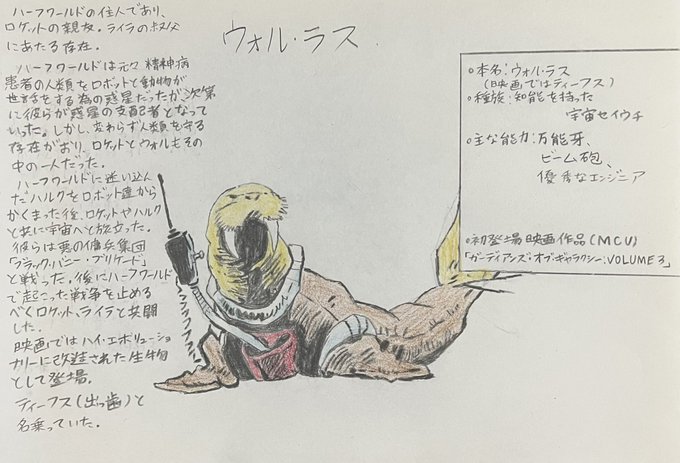 ウォル・ラス
ハーフワールドの住人であり、
ロケットの親友。ライラの叔父
にあたる存在。
ハーフワールドは元々精神病
患者の人類をロボットと動物が
世話をする為の惑星だったが次第
に彼らが惑星の支配者となって
いった。しかし、変わらず人類を守る
存在がおり、ロケットとウォルもその
中の一人だった。
ハーフワールドに迷い込ん
だハルクをロボット達から
かくまった後、ロケットやハルク
と共に宇宙へと旅立った。
彼らは悪の傭兵集団
「ブラック・バニー・ブリケード」
と戦った。後にハーフワールド
で起こった戦争を止める
べくロケット、ライラと共闘
した。
映画ではハイ・エボリューショ
ナリーに改造された生物
として登場。
ティーフス(出っ歯)と
名乗っていた。
•本名:ウォル・ラス
(映画ではティーフス)
•種族:知能を持った
宇宙セイウチ
•主な能力:万能牙、
ビーム砲、
優秀なエンジニア
•初登場映画作品(MCU)
「ガーディアンズ・オブ・ギャラクシー:VOLUME3」